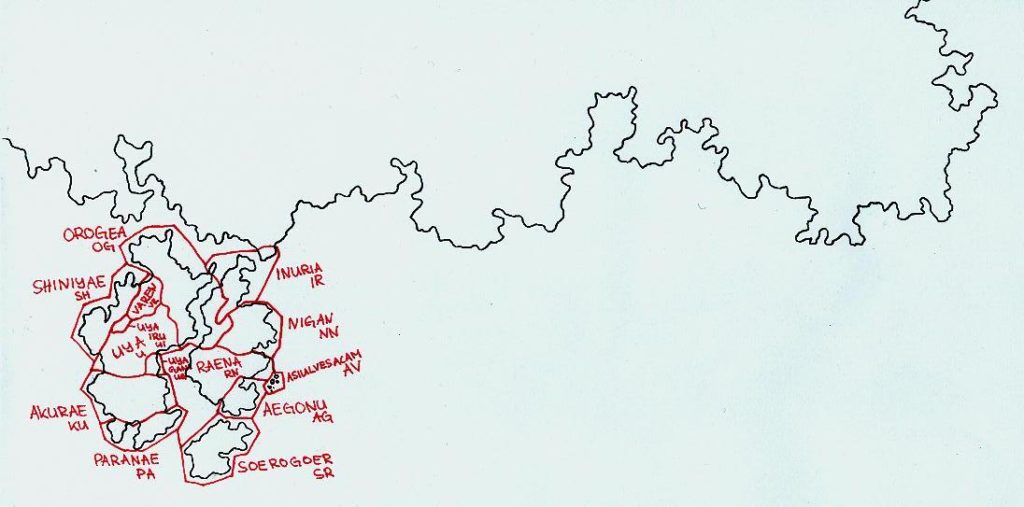 OROGEA
OG
SHINIYAE
SH
INURIA
IR
VAREN
VR
NIGAN
NN
UYA
IRU
UI
UYA
U
UYA
GAN
RAENA
RN
ASIULVESACAM
AV
AKURAE
KU
AEGONU
AG
PARANAE
PA
SOEROGOER
SR